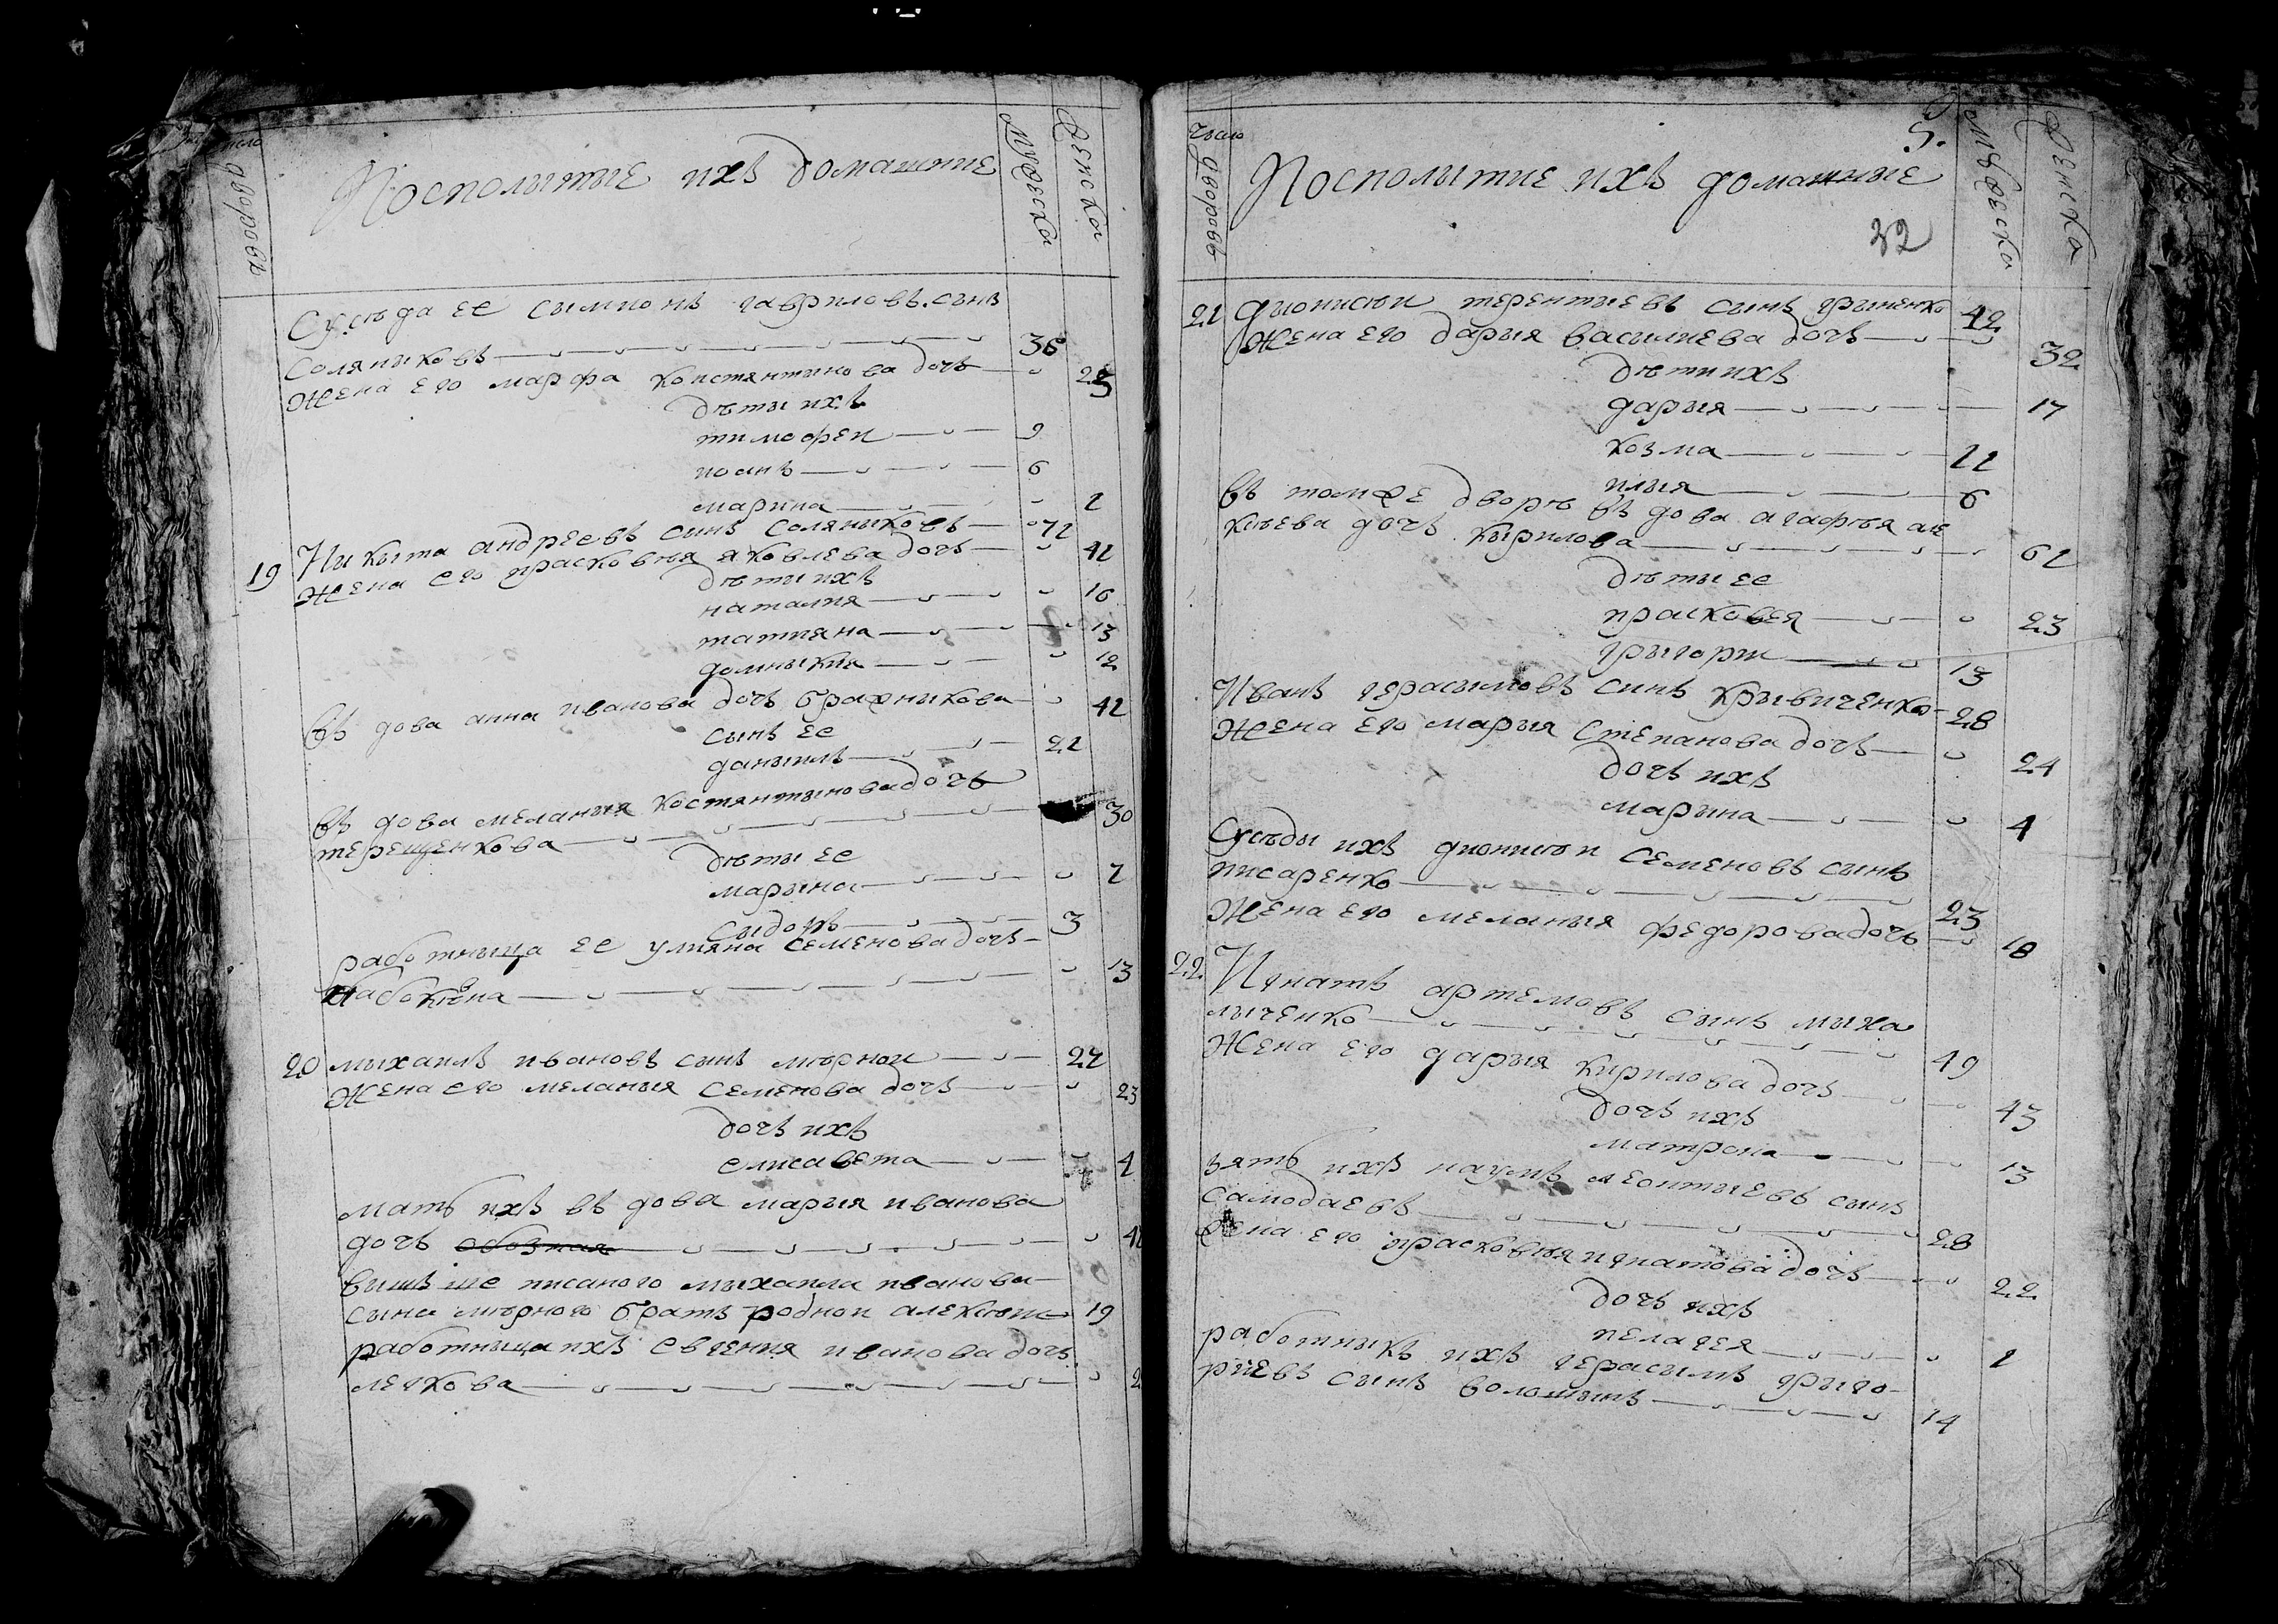 число дворовъ
Посполытые ихъ домашние
Мужеска
Женска
Сусѣда ее сымионъ гавриловъ сынъ
Соляниковъ 36
Жена его марфа константынова дочь 25
дѣты ихъ
тимофеи 9
иоанъ 6
марина 1
19 Никыта андреевъ синъ Соляныковъ
Жена его прасковия яковлева дочъ 41
дѣти ихъ
наталия 16
татияна 13
домныкия 12
Въдова анна иванова дочъ бражныкова 41
сынъ ее
даныилъ 21
Въдова мелания костянтыновадочъ
терещенкова 30
дѣты ее
марына 7
сыдоръ 3
работныца ее улияна семеновадочъ
13
20 мыхаилъ ивановъ сынъ мѣрнои 27
Жена его мелания семенова дочъ 23
дочъ ихъ
елисавета 1
мать ихъ въдова мария иванова
дочъ
вишъше писаного мыхаила иванова
сына мѣрного братъ роднои алексѣи 19
работныца ихъ евгения иванова дочъ
легкова
число дворовъ
5.
Посполытие ихъ домашные
32
Мужеска
Женска
21 дионисѣи терентиевъ сынъ грыненко 42
Жена его дария василиева дочъ 32
дѣти ихъ
дария 17
козма 11
илия 6
въ томже дворѣ въдова агафѣя але
ксѣева дочъ кырилова 61
дѣты ее
прасковея 23
грыгорѣи 13
Иванъ герасымовъ синъ крывиченко 28
Жена его мария Степанова дочъ 24
дочъ ихъ
марына 4
Сусѣды ихъ дионисѣи семеновъ сынъ
писаренко 23
Жена его мелания федоровадочъ 18
22 Игнатъ артемовъ сынъ мыха
лыченко 49
Жена его дария кирилова дочъ 43
дочъ ихъ
матрона 13
зять ихъ наумъ леонтыевъ сынъ
самодаевъ 28
Жена его прасковия игнатова дочъ 22
дочъ ихъ
пелагея 1
работныкъ ихъ герасымъ грыго-
риевъ сынъ волошынъ 14